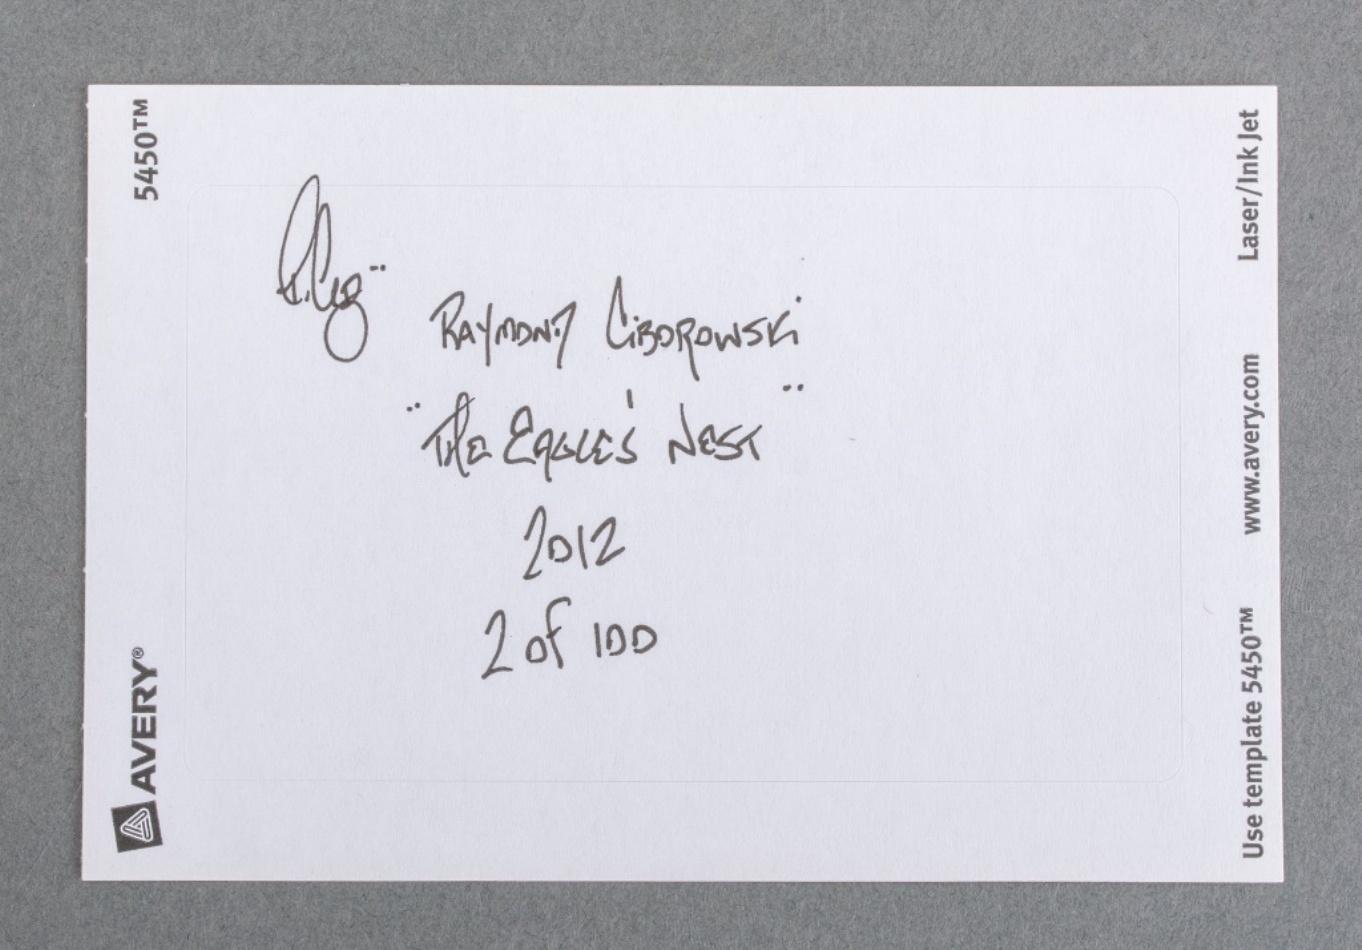 5450™
AVERY®
Raymond Ciborowski
"The Eagle's Nest"
2012
2 of 100
Laser/Ink Jet
www.avery.com
Use template 5450™